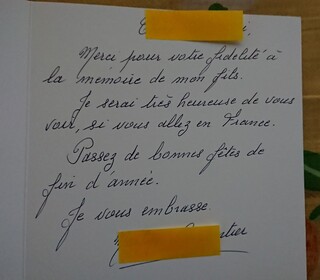 Merci pour votre fidelité à
la mémoire de mon fils.
Je serai très heureuse de vous
voir, si vous allez en France.
Passez de bonnes fêtes de
fin d'année.
Je vous embrasse.